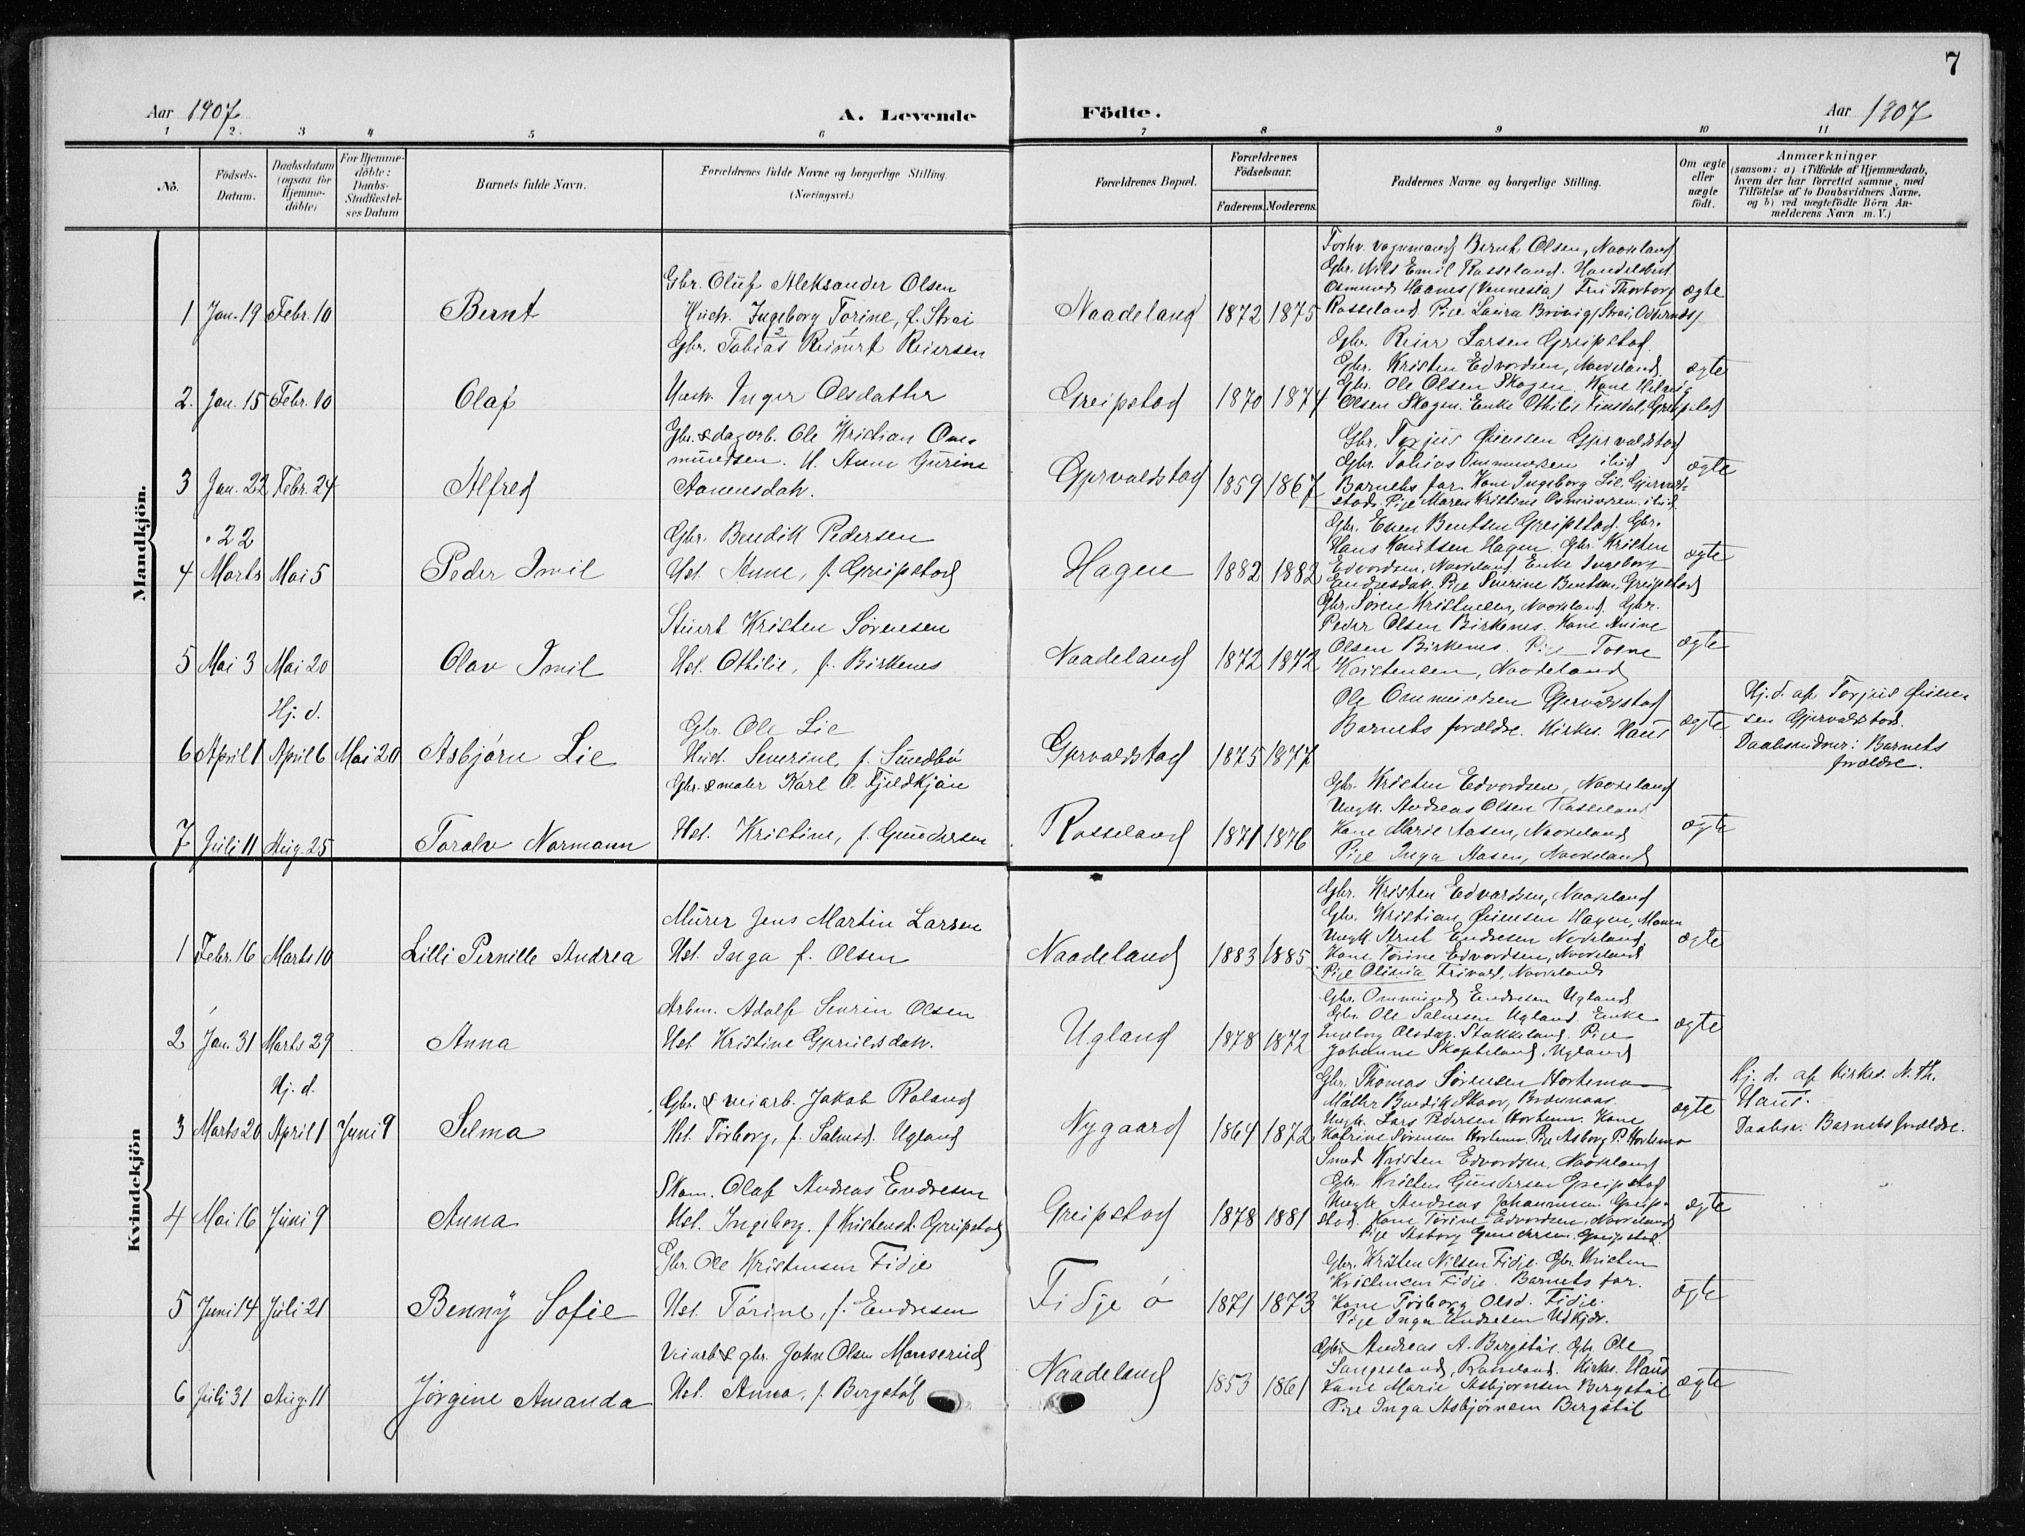 7
Aar 1907
A. Levende
Födte.
Aar 1907
1 2. 3 4 5 6 7 8 9 10 11
No.
Födsels-Datum.
Daabsdatum (ogsaa for Hjemme-döbte)
For Hjemme-döbte: Daabs-Stadfæstel-ses Datum
Barnets fulde Navn.
Forældrenes fulde Navne og borgerlige Stilling. (Næringsvei.)
Forældrenes Bopæl.
Forældrenes Födselsaar.
Faderens. Moderens.
Faddernes Navne og borgerlige Stilling.
Om ægte eller uægte født.
Anmærkninger
(saasom: a) i Tilfælde af Hjemmedaab, hvem der har forrettet samme, med Tilföielse af to Daabsvidners Navne, og b) ved uægtefödte Börn An-melderens Navn m. V.)
Mandkjön.
1 Jan. 19 Febr. 10 Bernt
Gbr. Oluf Aleksander Olsen
Hustr. Ingeborg Torine, f. Strai
Naadeland 1872 1875
Forhv. vognmand Bernt Olsen, Naadeland
Gbr. Nils Emil Rosseland. Handelsbest.
Osmund Haanes (Vennesla) Fru Thorborg
Rosseland Pige Laura Brøvig (Strai, Oddernes)
ægte
2. Jan. 15 Febr. 10 Olaf
Gbr. Tobias Reinert Reiersen
Hustr. Inger Olsdatter
Greipstad 1870 1874
Gbr. Reier Larsen Greipstad.
Gbr. Kristen Edvardsen, Naadeland.
Gbr. Ole Olsen Skogen. Kone
Olsen Skogen. Enke Othilie Greipstad
ægte
3 Jan. 22 Febr. 24 Alfred
Gbr. & dagarb. Ole Kristian Om-
mundsen. H. Anne Gurine
Aanensdatr.
Gjervaldstad 1859 1867
Gbr. Torjus Øiensen Gjervaldstad
Gbr. Tobias Ommundsen ibid
Barnets far. Kone Ingeborg Lie. Gjervald-
stad. Pige Maren Kristine Osmundsen. ibid.
ægte
4 22 Marts Mai 5 Peder Imil
Gbr. Bendik Pedersen
Hst. Anne, f. Greipstad
Hagen 1882 1882
Gbr. Even Bentsen Greipstad. Gbr.
Hans Knutsen Hagen. Gbr. Kristen
Edvardsen, Naadeland. Enke Ingeborg
Endresdatr. Pige Severine Bentsen, Greipstad
ægte
5 Mai 3 Mai 20 Olav Imil
Stuert Kristen Sørensen
Hst. Othilie, f. Birkenes
Naadeland 1872 1872
Gbr. Søren Kristensen, Naadeland. Gbr.
Peder Olsen Birkenes. Kone Anine
Olsen Birkenes. Pige Tosne
Kristensen, Naadeland
ægte
6 April 1 Hj. d. April 6 Mai 20 Asbjørn Lie
Gbr. Ole Lie
Hust. Severine, f. Sundbø
Gjervaldstad 1875 1877
Ole Ommundsen Gjervaldstad
Barnets forældre. Kirkes. Haus
ægte
Hj. d. af Torjus Øien-
sen Gjervaldstad.
Daabsvidner: Barnets
forældre.
7 Juli 11 Aug. 25 Toralv Normann
Gbr. & maler Karl O. Fjeldkjøn
Hst. Kristine, f. Gundersen
Rosseland 1871 1876
Gbr. Kristen Edvardsen, Naadeland
Ungk. Andreas Olsen Rosseland
Kone Marie Aasen, Naadeland
Pige Inga Aasen, Naadeland
ægte
Kvindekjön
1 Febr. 16 Marts 10 Lilli Pernille Andrea
Murer Jens Martin Larsen
Hst. Inga f. Olsen
Naadeland 1883 1885
Gbr. Kristen Edvardsen, Naadeland
Gbr. Kristian Øiensen Hagen,
Ungk. Arnt Endresen Nodeland
Kone Tørine Edvardsen, Naadeland
Pige Olivia Naadeland
ægte
2 Jan. 31 Marts 29 Anna
Arbm. Adolf Severin Olsen
Hst. Kristine Gjeruldsdatr.
Ugland 1878 1872
Gbr. Ommund Endresen Ugland
Gbr. Ole Salvesen Ugland. Enke
Ingeborg Olsdatr. Stokkeland. Pige
Johanne Skopteland, Ugland
ægte
3 Marts 20 Hj. d. April 1 Juni 9 Selma
Gbr. & veiarb. Jakob Roland
Hst. Torborg, f. Salvesd. Ugland
Nygaard 1864 1872
Gbr. Thomas Sørensen Hortemo
Møller Bendik Skaar,
Ungk. Lars Pedersen Hortemo. Kone
Katrine Sørensen Hortemo. Pige Asborg P. Hortemo
ægte
Hj. d. af Kirkes. N. Th.
Haus.
Daabsv: Barnets forældre.
4 Mai 16 Juni 9 Anna
Skom. Olaf Andreas Endresen
Hst. Ingeborg, f. Kristensd. Greipstad
Greipstad 1878 1881
Smed Kristen Edvardsen, Naadeland
Gbr. Kristen Gundersen Greipstad
Ungk. Andreas Johannesen Greip-
stad. Kone Tørine Edvardsen, Naadeland
Pige Asborg Gundersen, Greipstad.
ægte
5 Juni 14 Juli 21 Benny Sofie
Gbr. Ole Kristensen Fidje
Hst. Tørine, f. Endresen
Fidje ø 1871 1873
Gbr. Kristen Nilsen Fidje. Gbr. Kristen
Kristensen Fidje. Barnets far.
Kone Torborg Olsd. Fidje.
Pige Inga Endresen Udkjær.
ægte
6 Juli 31 Aug. 11 Jørgine Amanda
Veiarb & gbr. John Olsen Monserud
Hst. Anna, f. Bergstøl
Naadeland 1853 1861
Gbr. Andreas A. Bergstøl. Gbr Ole
Langeland, Rosseland. Kirkes. Haus
Kone Marie Asbjørnsen Bergstøl
Pige Inga Asbjørnsen Bergstøl
ægte